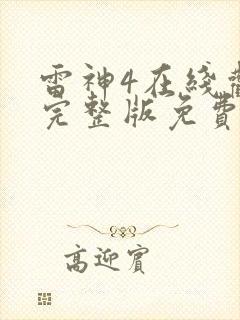 雷神4在线
完整版免費
高迎賓